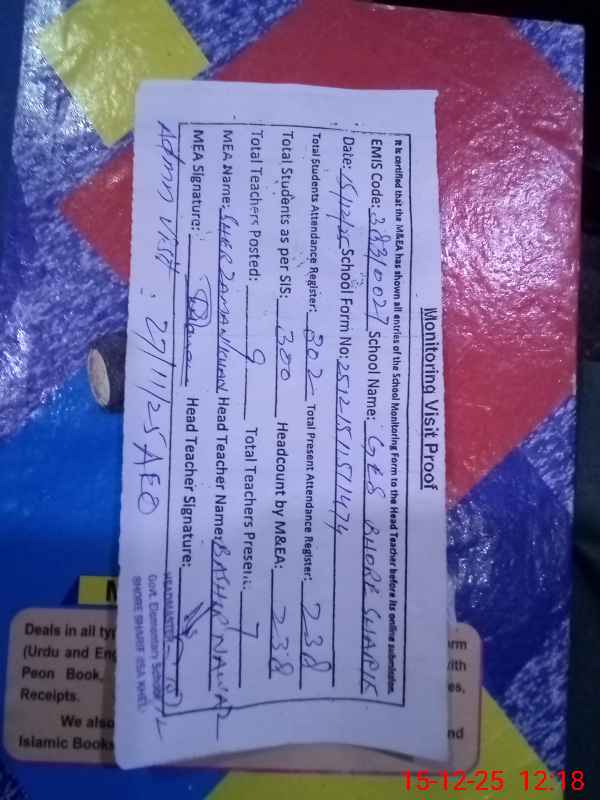 Monitoring Visit Proof
It is certified that the M&EA has shown all entries of the School Monitoring Form to the Head Teacher before its online submission.
EMIS Code: 38310027 School Name: GES BHORE SHARIF
Date: 15/12/25 School Form No: 2512151151474
Total Students Attendance Register: 302 Total Present Attendance Register: 238
Total Students as per SIS: 300 Headcount by M&EA: 238
Total Teachers Posted: 9 Total Teachers Present: 7
MEA Name: SHER ZAMAN KHAN Head Teacher Name: BASHIR NAWAZ
MEA Signature: Head Teacher Signature:
Admn Visit. 27/11/25 AEO
HEADMASTER
Govt. Elementary School
SHORE SHARIF (ISA KHEL)
Deals in all
(Urdu and
Peon Book,
Receipts.
We also
Islamic Books
15-12-25 12:18